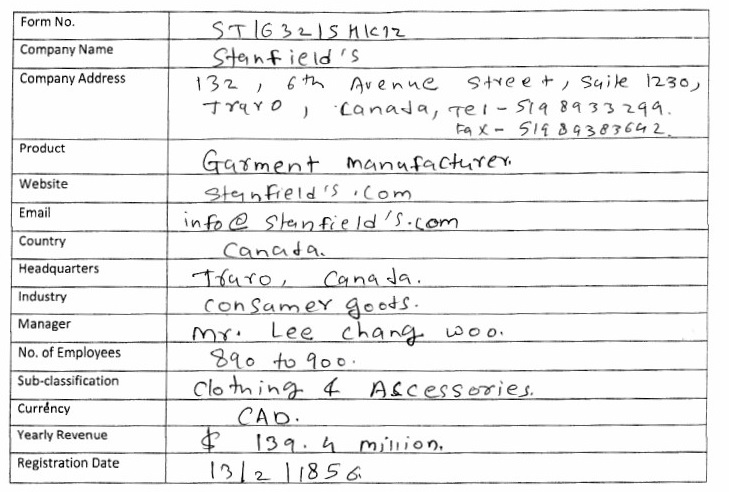 Form No. STIG3215HK12
Company Name Stanfield's
Company Address 132, 6th Avenue Street, Suite 1230,
Truro, Canada, Tel - 519 8933299.
Fax - 519 89383642.
Product Garment manufacturer.
Website Stanfield's.com
Email info@stanfield's.com
Country Canada.
Headquarters Truro, Canada.
Industry Consamer goods.
Manager Mr. Lee chang woo.
No. of Employees 890 to 900.
Sub-classification Clothing & Accessories.
Currency CAD.
Yearly Revenue $ 139.4 million.
Registration Date 13/2/1856